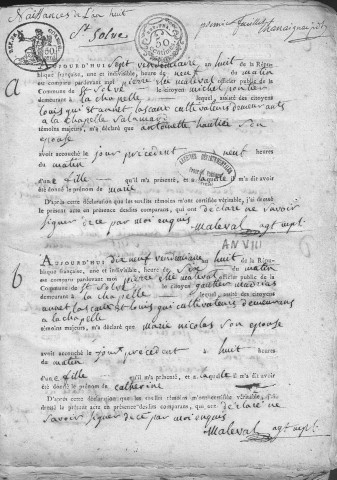 Naissances de l'an huit
St Solve
premier feuillet
AUJOURD'HUI Sept vendemiaire an huit de la République française, une et indivisible, heure de neuf du matin
est comparu pardevant moi pierre elie maleval officier public de la
Commune de St Solve le citoyen michel pontier
demeurant à la chapelle lequel, assisté des citoyens
louis qui et annet lascaux cultivateurs demeurants
a la chapelle Salamard
témoins majeurs, m'a déclaré que antoinette hautier Son
epouse
avoit accouché le jour précédent à neuf heures
du matin
d'une fille qu'il m'a présenté, et à laquelle il m'a dit avoir
été donné le prénom de marie
D'après cette déclaration que les susdits témoins m'ont certifiée véritable, j'ai dressé
le présent acte en présence desdits comparans, qui ont déclaré ne savoir
signer de ce par moi enquis
Maleval agt mpl
AN VIII
AUJOURD'HUI dix neuf vendemiaire an huit de la République française, une et indivisible, heure de Six du matin
est comparu pardevant moi pierre elie maleval officier public de la
Commune de St Solve le citoyen gautier mathias
demeurant à la chapelle lequel, assisté des citoyens
annet lascaux et louis qui cultivateurs demeurans
a la chapelle
témoins majeurs, m'a déclaré que Marie nicolas Son epouse
avoit accouché le jour précédent à huit heures
du matin
d'une fille qu'il m'a présenté, et à laquelle il m'a dit avoir
été donné le prénom de catherine
D'après cette déclaration que les susdits témoins m'ont certifiée véritable, j'ai dressé
le présent acte en présence desdits comparans, qui ont déclaré ne
savoir signer de ce par moi enquis
Maleval agt mpl